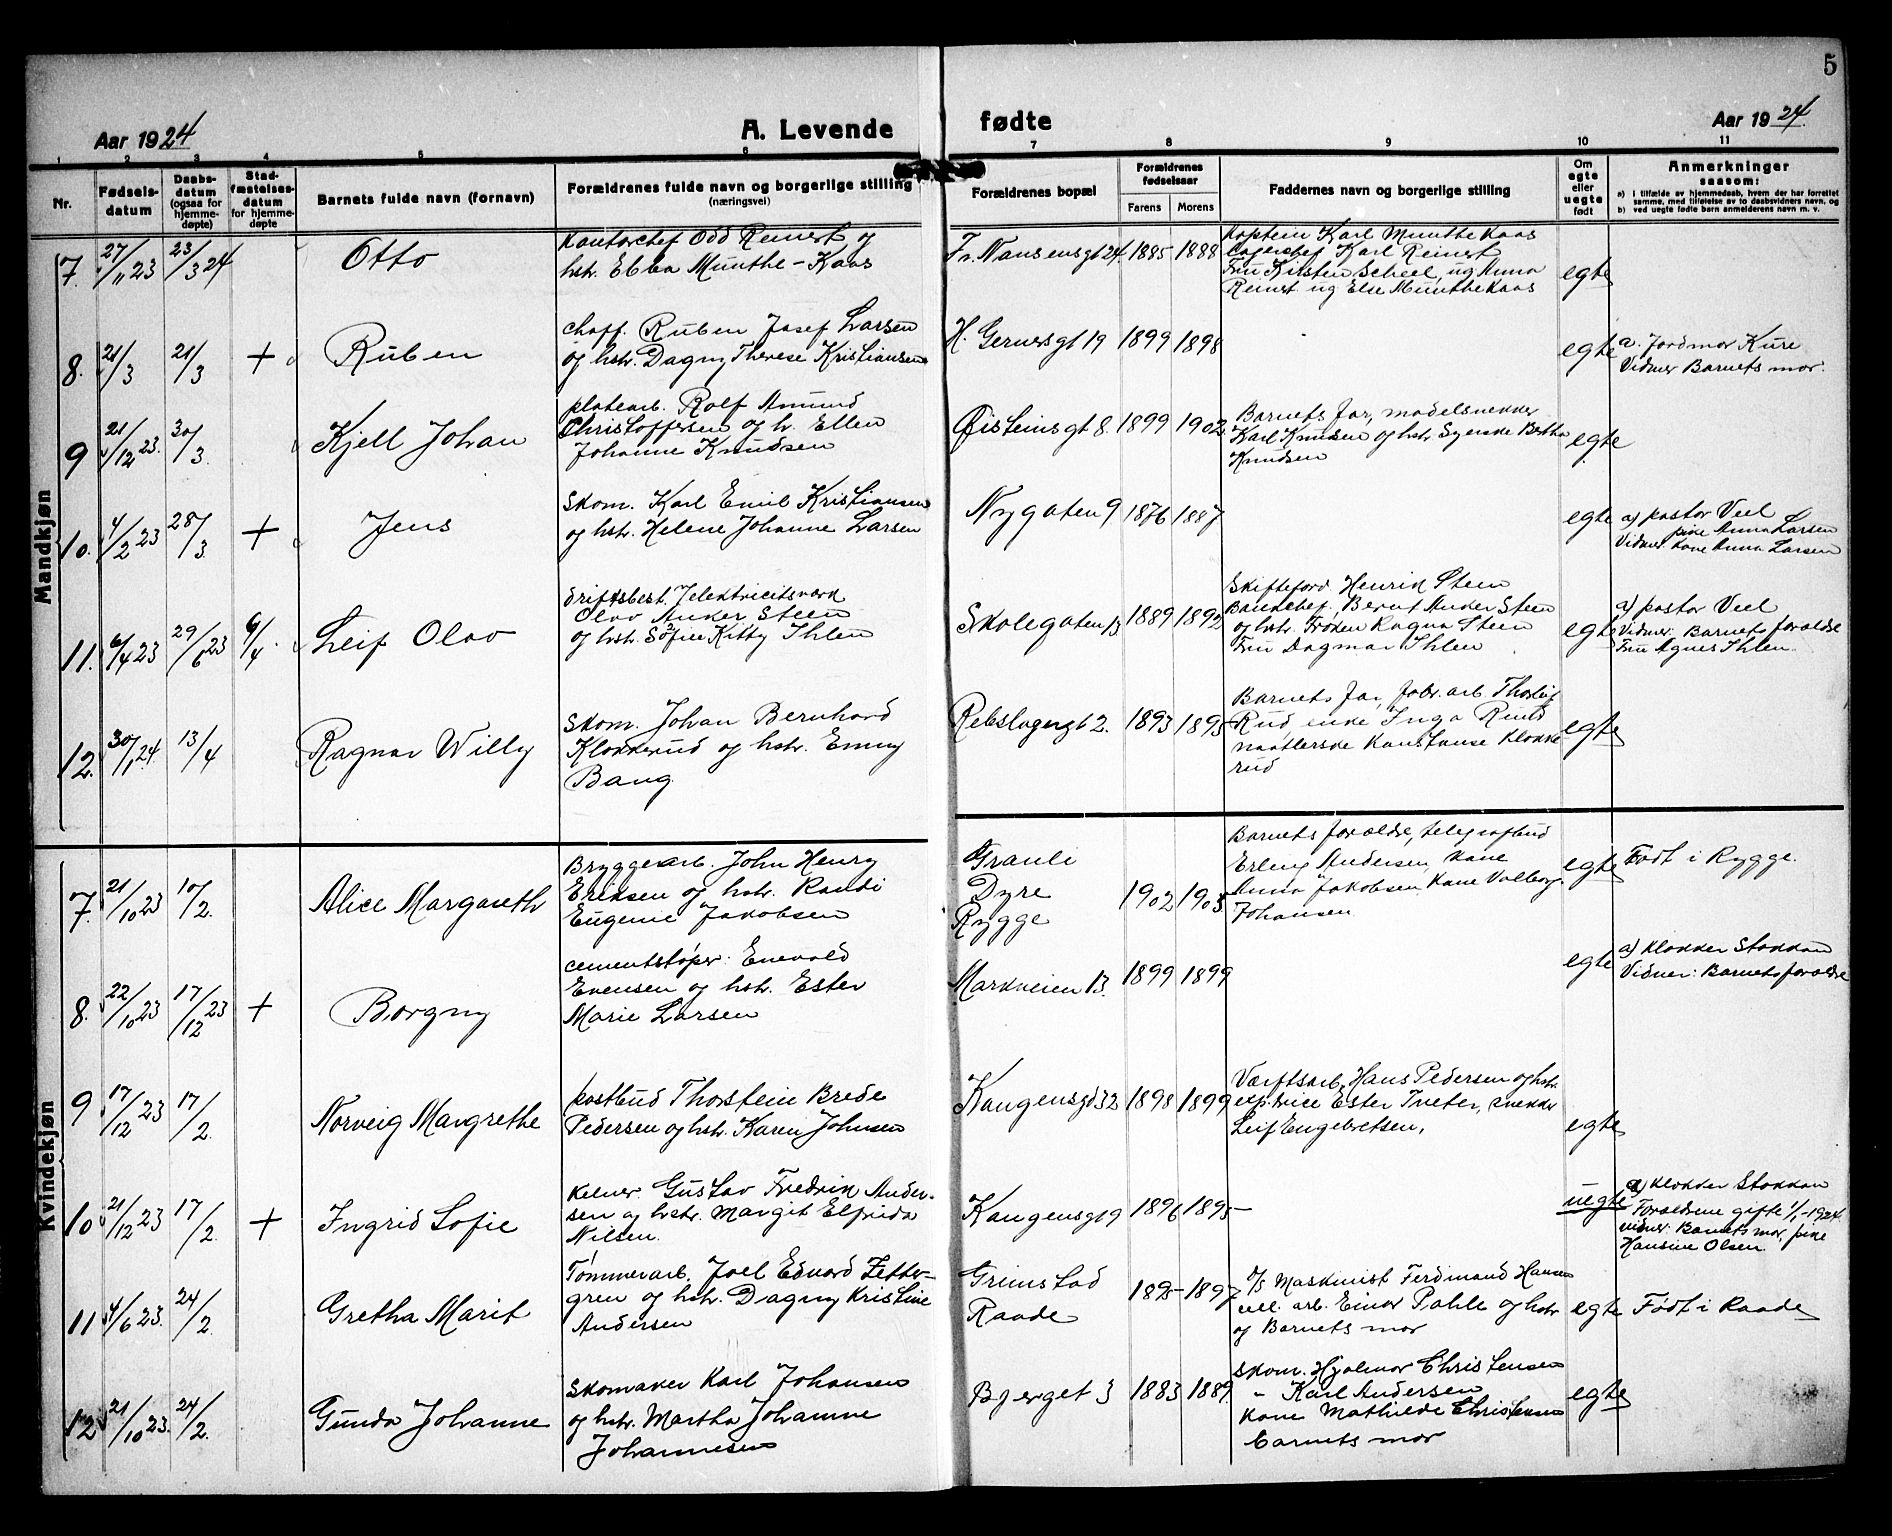 5
Aar 1924
A. Levende fødte
Aar 1924
1 2 3 4 5 6 7 8 9 10 11
Nr.
Fødsels-
datum
Daabs-
datum
(ogsaa for
hjemme-
døpte)
Stad-
fæstelses-
datum
for hjemme-
døpte
Barnets fulde navn (fornavn)
Forældrenes fulde navn og borgerlige stilling
(næringsvei)
Forældrenes bopæl
Forældrenes
fødselsaar
Farens Morens
Faddernes navn og borgerlige stilling
Om
egte
eller
uegte
født
Anmerkninger
saasom:
a) i tilfælde av hjemmedaab, hvem der har forrettet
samme, med tilføielse av to daabsvidners navn, og
b) ved uegte fødte barn anmelderens navn m. v.
Mandkjøn
7. 27/11 23 23/3 24 Otto
Kontorchef Odd Reinert og
hstr. Ebba Munthe-Kaas
Fr. Nansensgt 24 1885 1888
Kaptein Karl Munthe Kaas
Lagerchef Karl Reinert
Fru Kirsten Scheel, ug Anna
Reinert ug Else Munthe Kaas
egte
8. 21/3 21/3 + Ruben
chaff. Ruben Josef Larsen
og hstr. Dagny Therese Kristiansen
H. Gernersgt 19 1899 1898
egte
a. Jordmor Kure
Vidner Barnets mor.
9 21/12 23. 30/3. Kjell Johan
platearb. Rolf Amund
Christoffersen og h. Ellen
Johanne Knudsen
Øisteinsgt 8. 1899 1902
Barnets far, modelsnekker
Karl Knudsen og hstr Syenske Bertha
Knudsen
egte
10. 4/2 23 28/3 + Jens
Skom. Karl Emil Kristiansen
og hstr. Helene Johanne Larsen
Nygaten 9 1876 1887
egte
a) pastor Veel
pike Anna Larsen
Vidner: Kone Anna Larsen
11. 6/4 23 29/6 23 6/4. Leif Olav
driftsbest. v/elektricitsværk
Olav Anker Steen
og hstr. Sofie Kitty Ihlen
Skolegaten 13 1889 1892
Skifteford. Henrik Steen
Bankchef, Bernt Anker Steen
og hstr. Frøken Ragna Steen
Fru Dagmar Ihlen
egte
a) pastor Veel
Vidner: Barnets foraldre
Fru Agnes Ihlen.
12. 30/1 24. 13/4 Ragnar Willy
Skom. Johan Bernhard
Klokkerud og hstr. Emmy
Bang.
Rebslagergt 2. 1893 1895
Barnets far, fabr. arb. Thorleif
Rud, enke Inga Rud
naatlerske Konstanse Klokke
rud
egte
Kvindekjøn
7. 21/10 23 10/2. Alice Margareth
Bryggearb. John Henry
Eriksen og hstr. Randi
Eugenie Jakobsen
Grauli
Dyre
Rygge
1902 1905
Barnets foraldre, telegrafbud
Erling Andersen, kone
Anna Jakobsen Kone Valborg
Johansen
egte
Født i Rygge.
8. 22/10 23 17/12 23 + Borgny
cementstøper: Enevald
Evensen og hstr. Ester
Marie Larsen
Markveien 13. 1899 1899
egte
a) Klokker Stokkan
Vidner: Barnets foraldre
9 17/12 23 17/2. Norveig Margrethe
postbud Thorstein Brede
Pedersen og hstr. Karen Johnsen
Kongensgd 32 1898 1899
Værftsarb. Hans Pedersen og hstr
exp.trice Ester Tveter, snekker
Leif Engebretsen,
egte
10 21/12 23 17/2. + Ingrid Sofie
Kelner. Gustav Fredrik Ander-
sen og hstr. Margit Elfrida
Nilsen.
Kongensgt 9 1896 1895-
uegte
a) Klokker Stokkan
Foraldrene gifte 1/1-1924.
vidner: Barnets mor, pike
Hansine Olsen
11 4/6 23. 24/2. Gretha Marit
Tømmerarb. Joel Edvard Zetter-
gren og hstr. Dagny Kristine
Andersen
Grimstad
Raade
1895- 1897
Maskinist Ferdinand Hansen
arb. Einar Pahle og hstr
og Barnets mor
egte
Født i Raade
12 21/10 23. 24/2. Gunda Johanne
Skomaker Karl Johansen
og hstr. Martha Johanne
Johannesen
Bjerget 3 1883 1889.
Skom. Hjalmar Christensen
" Karl Andersen
Kone Mathilde Christensen
barnets mor
egte